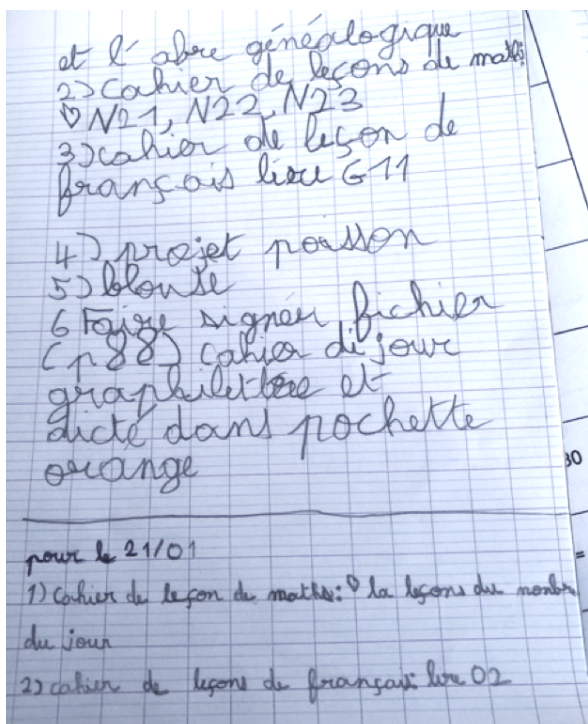 et l'abre généalogique
2) Cahier de leçons de maths:
♡ N21, N22, N23
3) cahier de leçon de
français lire G11
4) projet poisson
5) blouse
6 Faire signer fichier
(p 88) cahier di jour
graphilettre et
dicté dans pochette
orange
30
=
pour le 21/01
1) Cahier de leçon de maths: ♡ la leçons du nombre
du jour
2) cahier de leçons de français: lire O2